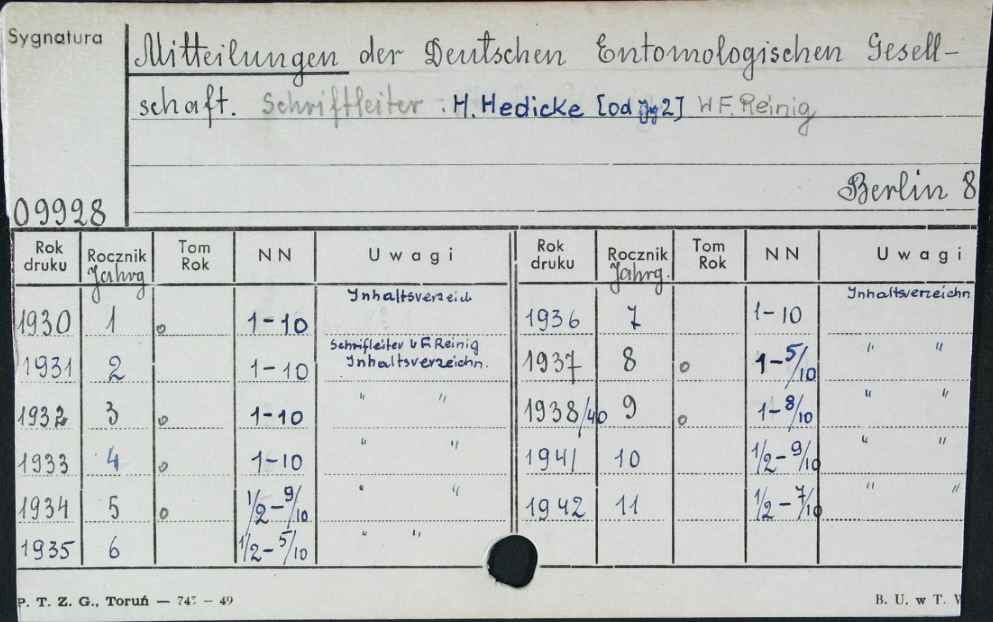 Sygnatura
Mitteilungen der Deutschen Entomologischen Gesell-
schaft. Schriftleiter: H. Hedicke [od Jg 2] W F. Reinig
Berlin 8
09928
Rok druku Rocznik Jahrg Tom Rok NN Uwagi Rok druku Rocznik Jahrg. Tom Rok NN Uwagi
1930 1 o 1-10 Inhaltsverzeich 1936 7 1-10 Inhaltsverzeichn
1931 2 1-10 Schrifleiter W F. Reinig Inhaltsverzeichn. 1937 8 o 1-5/10 " "
1932 3 o 1-10 " " 1938/40 9 o 1-8/10 " "
1933 4 o 1-10 " " 1941 10 1/2-9/10 " "
1934 5 o 1/2-9/10 " " 1942 11 1/2-7/10 " "
1935 6 1/2-5/10 " "
P. T. Z. G., Toruń — 49
B. U. w T. W